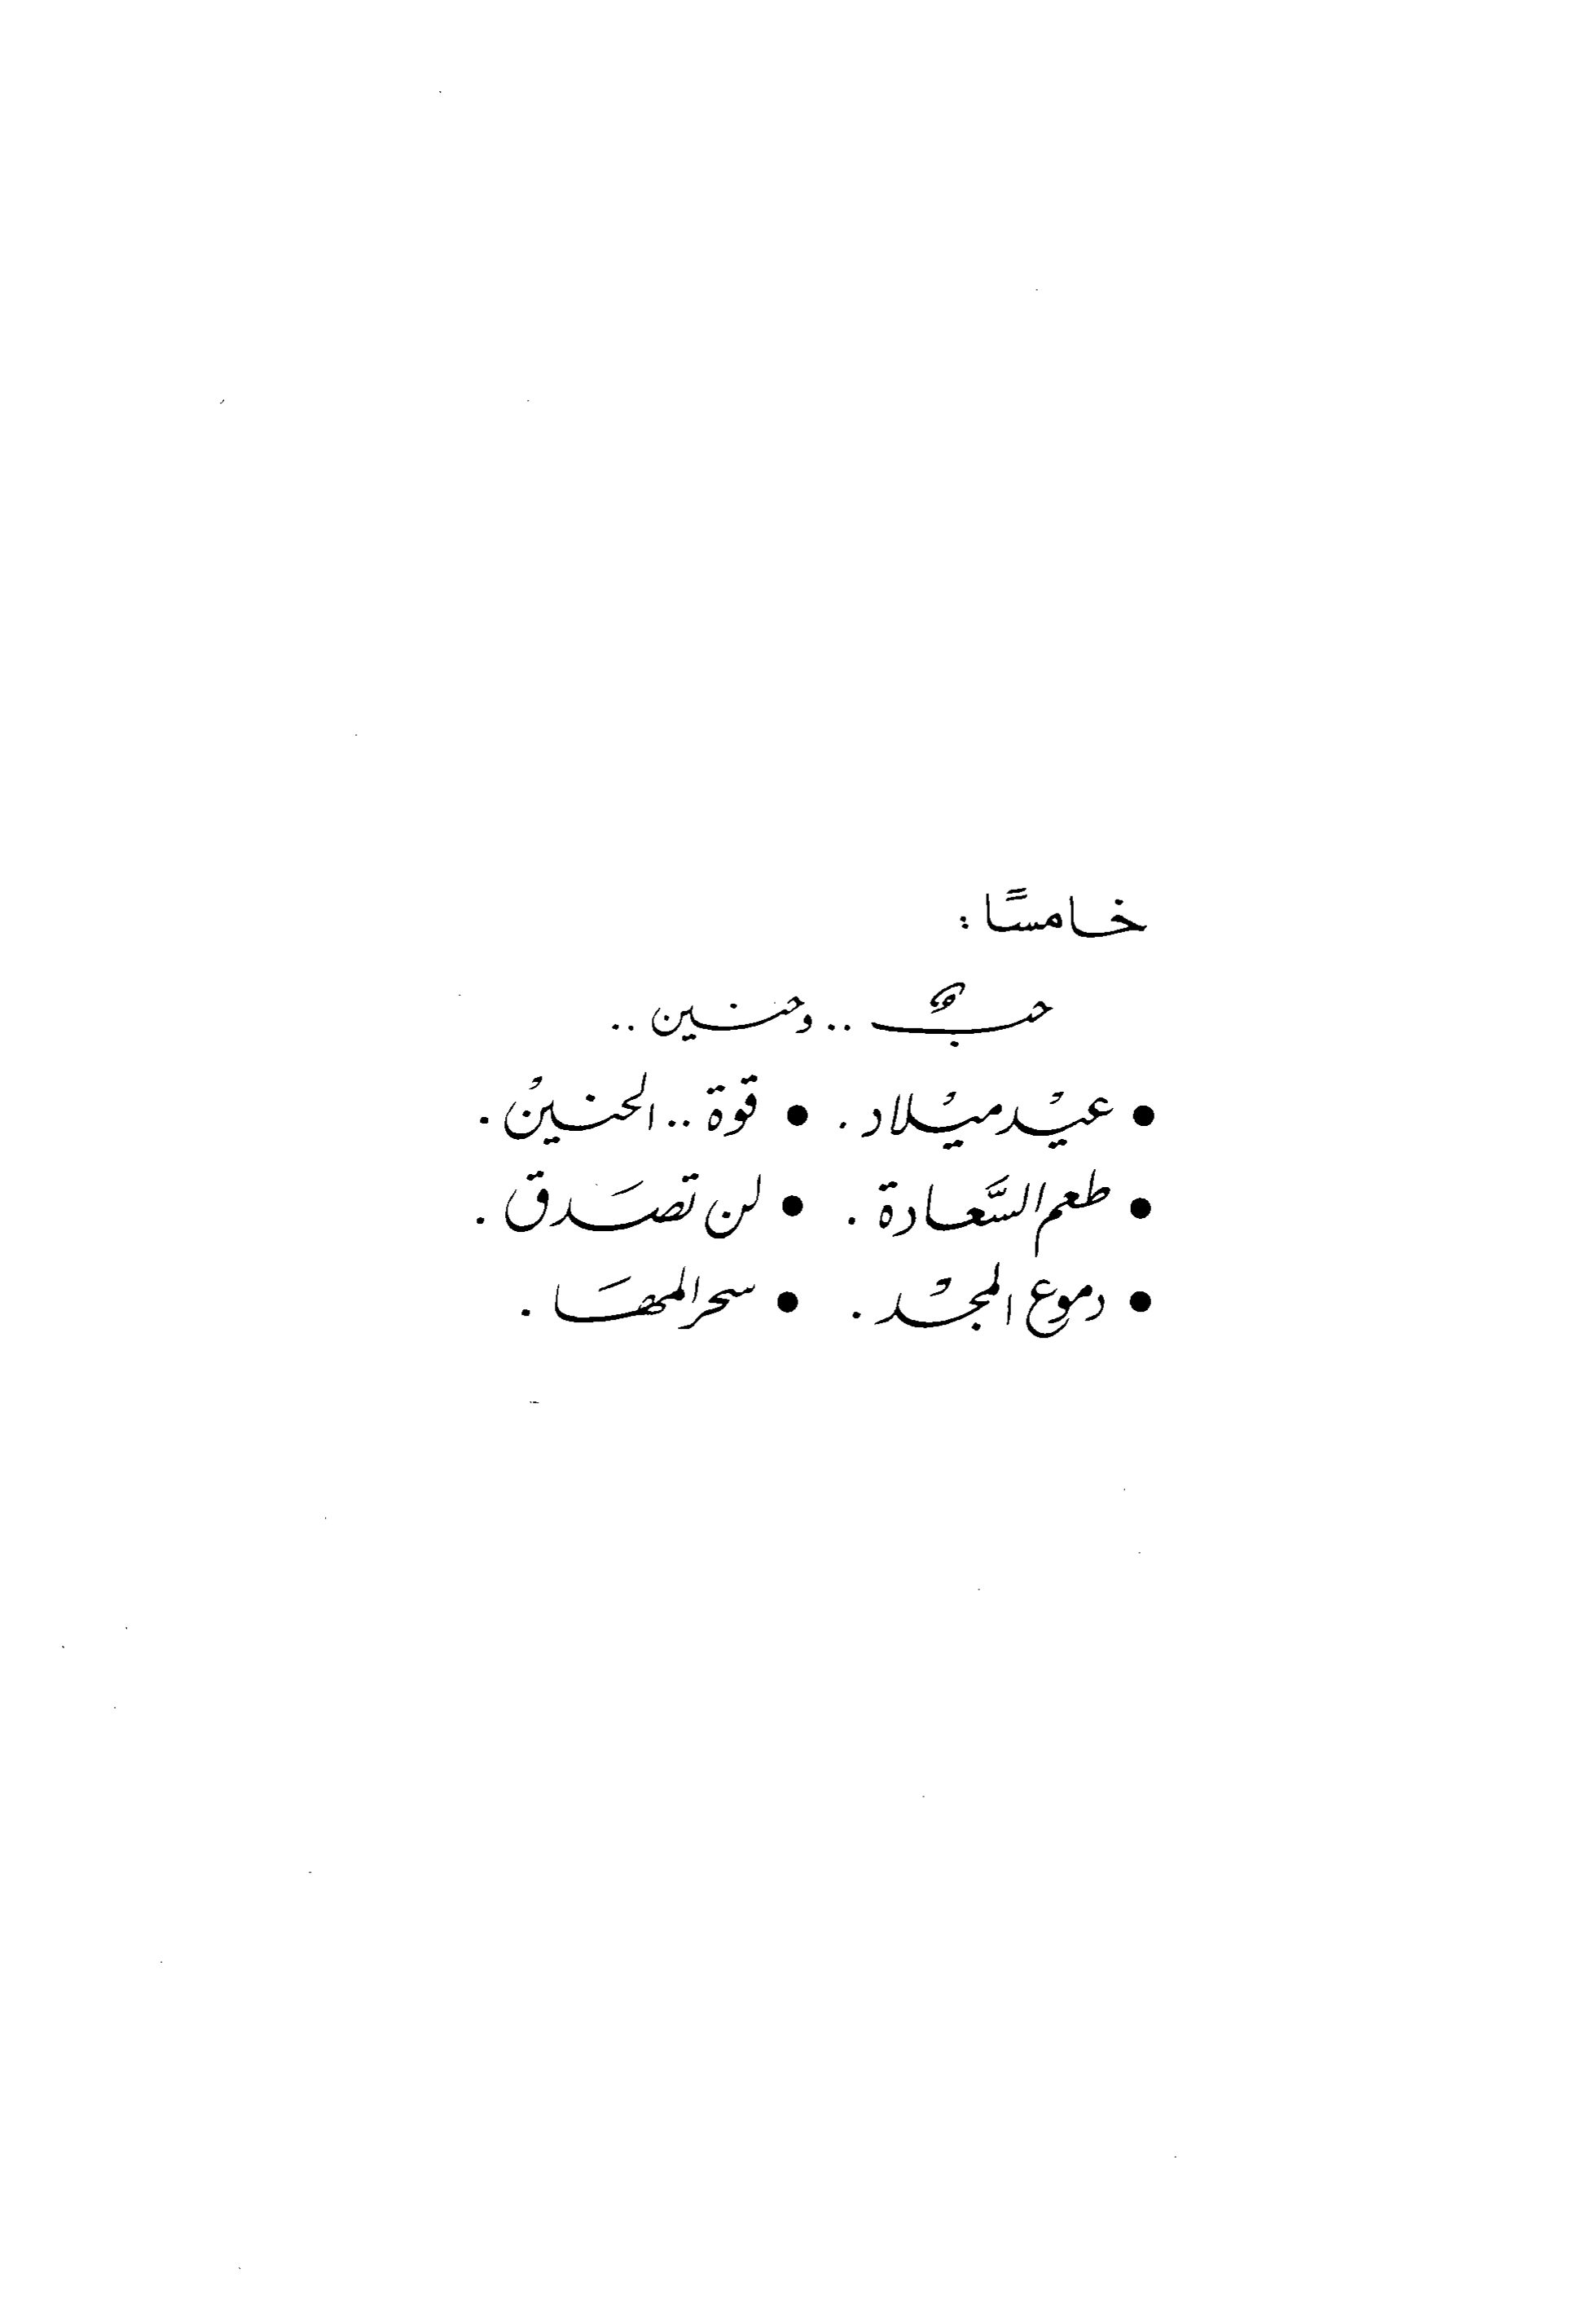 خامسًا :
حبٌ .. وحنين ..
• عيْد ميْلاد . • قوة .. الحنينْ .
• طعم السَّعادة . • لن تصَدق .
• دموع المجْد . • سحر المهَا .